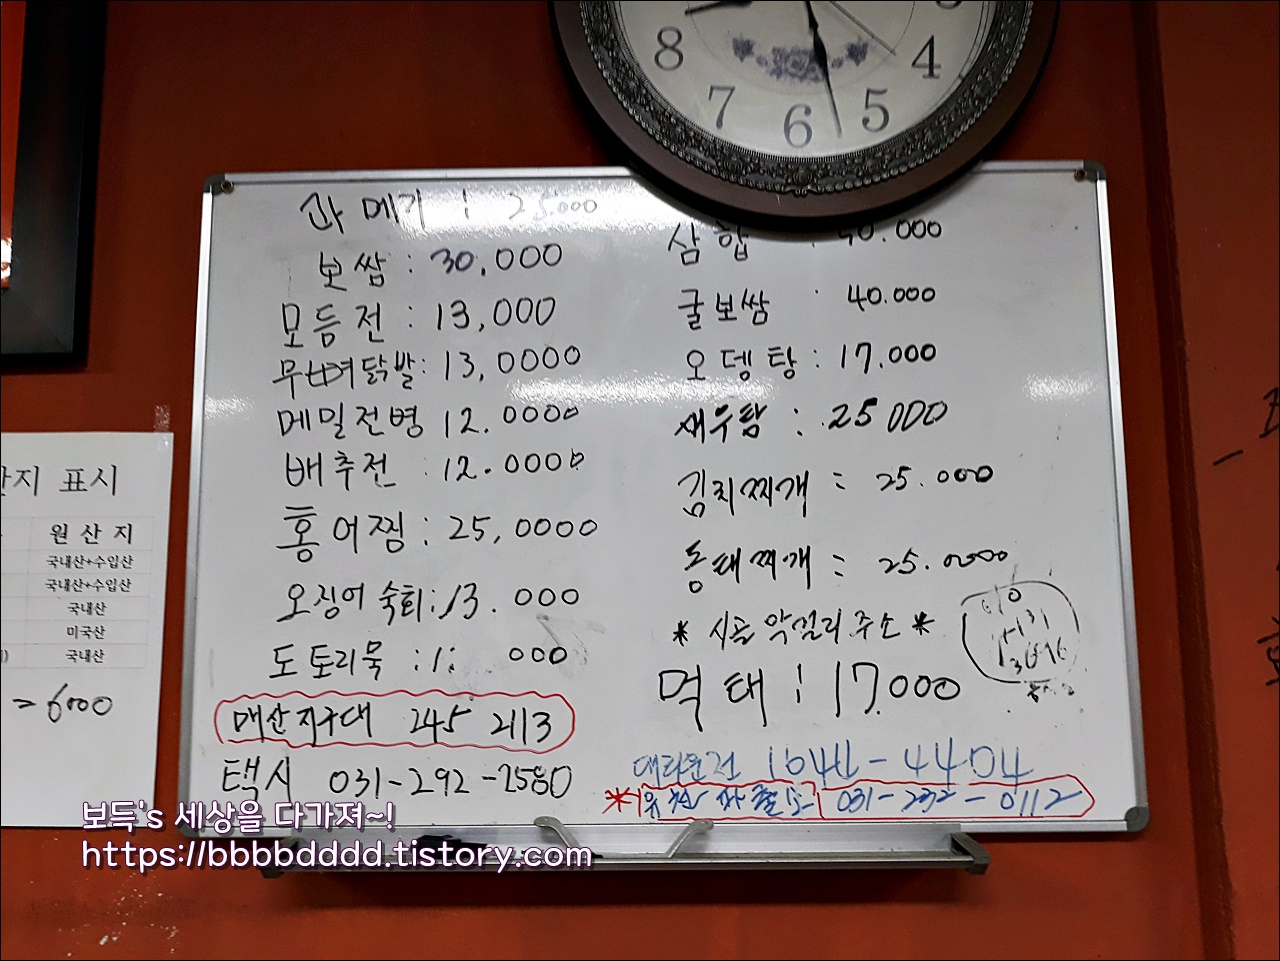 과메기 : 25.000
보쌈 : 30,000
모듬전 : 13,000
무뼈닭발 : 13,0000
메밀전병 12.0000
배추전 : 12.0000
홍어찜 : 25,0000
오징어숙회 : 13.000
도토리묵 : 1 000
매산지구대 245 2113
택시 031-292-2580
삼합 : 50.000
굴보쌈 : 40.000
오뎅탕 : 17.000
새우탕 : 25000
김치찌개 = 25.000
동태찌개 = 25.0000
* 시골 막걸리 주소 *
먹태 : 17.000
대리운전 1644-4404
* 파출소 031-232-0112
8
7
6
5
4
산지 표시
원 산 지
국내산+수입산
국내산+수입산
국내산
미국산
국내산
= 6000
보득's 세상을 다가져~!
https://bbbbdddd.tistory.com